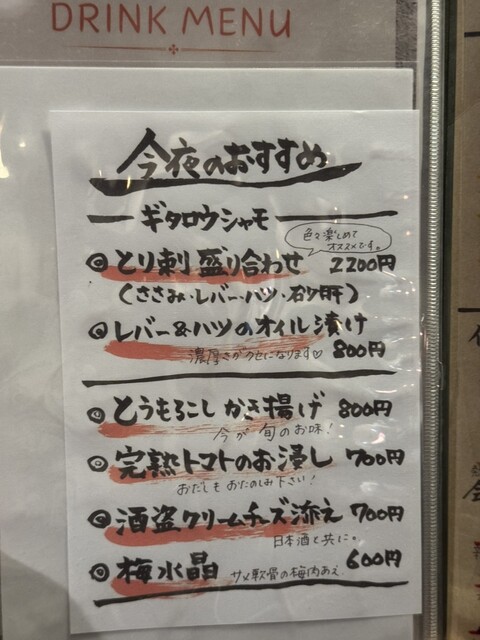 DRINK MENU
今夜のおすすめ
ギタロウシャモ
色々楽しめて
オススメです。
◎とり刺盛り合わせ 2200円
(ささみ・レバー・ハツ・砂肝)
◎レバー&ハツのオイル漬け
濃厚さがクセになります♡ 800円
◎とうもろこしかき揚げ 800円
今が旬のお味!
◎完熟トマトのお浸し 700円
おだしもおたのしみ下さい!
◎酒盗クリームチーズ添え 700円
日本酒と共に。
◎梅水晶 600円
サメ軟骨の梅肉あえ